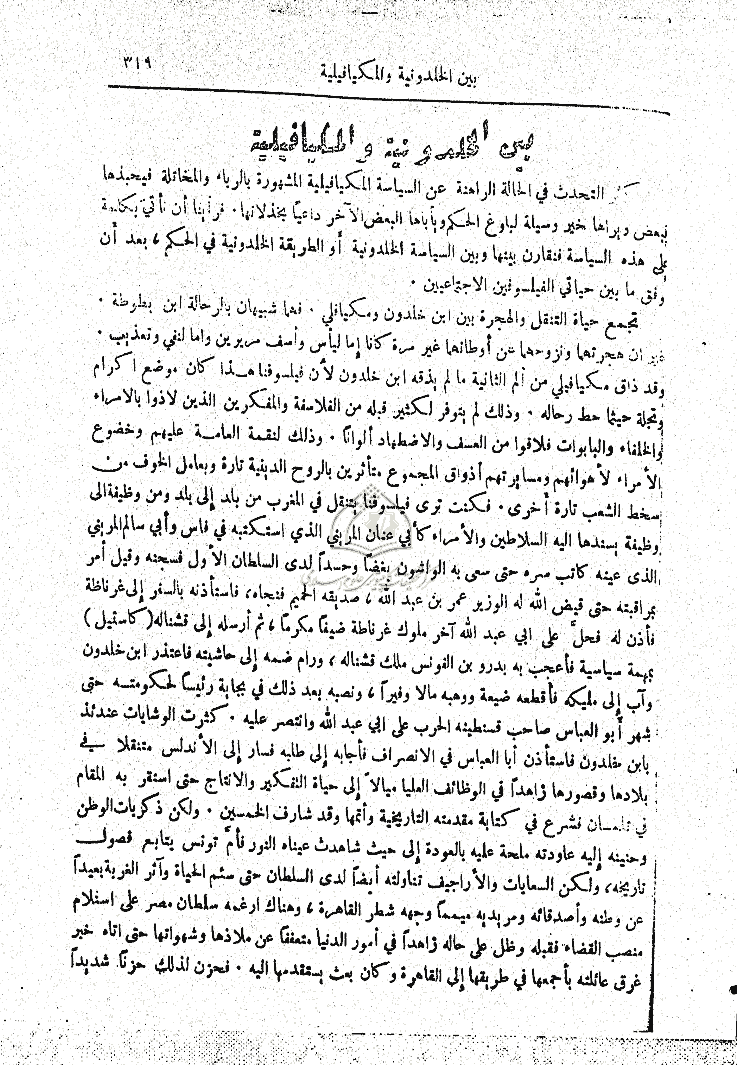 بين الخلدونية والمكيافيلية
٣١٩
بين الخلدونية والمكيافيلية
كثر التحدث في الحالة الراهنة عن السياسة المكيافيلية المشهورة بالرياء والمخاتلة فيحبذها
بعض ويراها خير وسيلة لبلوغ الحكم ويأباها البعض الآخر داعياً بخذلانها . فرأينا أن نأتي بكلمة
على هذه السياسة فنقارن بينها وبين السياسة الخلدونية أو الطريقة الخلدونية في الحكم ، بعد أن
نوفق ما بين حياتي الفيلسوفين الاجتماعيين .
تجمع حياة التنقل والهجرة بين ابن خلدون ومكيافلي . فهما شبيهان بالرحالة ابن بطوطة .
غير ان هجرتهما ونزوحهما عن أوطانهما غير مرة كانا إما ليأس وأسف مريرين واما لنفي وتعذيب .
وقد ذاق مكيافيلي من ألم الثانية ما لم يذقه ابن خلدون لأن فيلسوفنا هذا كان موضع اكرام
وتجلة حيثما حط رحاله . وذلك لم يتوفر لكثير قبله من الفلاسفة والمفكرين الذين لاذوا بالامراء
والخلفاء والبابوات فلاقوا من العسف والاضطهاد ألواناً . وذلك لنقمة العامة عليهم وخضوع
الأمراء لأهوائهم ومسايرتهم أذواق المجموع متأثرين بالروح الدينية تارة وبعامل الخوف من
سخط الشعب تارة أخرى . فكنت ترى فيلسوفنا يتنقل في المغرب من بلد إلى بلد ومن وظيفة الى
وظيفة يسندها اليه السلاطين والأمراء كأبي عنان المريني الذي استكتبه في فاس وأبي سالم المريني
الذى عينه كاتب سره حتى سعى به الواشون بغضاً وحسداً لدى السلطان الأول فسجنه وقيل أمر
بمراقبته حتى قيض الله له الوزير عمر بن عبد الله ، صديقه الحميم فنجاه ، فاستأذنه بالسفر إلى غرناطة
فأذن له فحلّ على ابي عبد الله آخر ملوك غرناطة ضيفاً مكرماً ، ثم أرسله إلى قشتاله ( كاستيل )
بمهمة سياسية فأعجب به بدرو بن الفونس ملك قشتاله ، ورام ضمه إلى حاشيته فاعتذر ابن خلدون
وآب إلى مليكه فأقطعه ضيعة ووهبه مالا وفيراً ، ونصبه بعد ذلك في بجاية رئيساً لحكومته حتى
شهر أبو العباس صاحب قسنطينه الحرب على ابي عبد الله وانتصر عليه . كثرت الوشايات عندئذ
بابن خلدون فاستأذن أبا العباس في الانصراف فأجابه إلى طلبه فسار إلى الأندلس متنقلا في
بلادها وقصورها زاهداً في الوظائف العليا ميالاً إلى حياة التفكير والانتاج حتى استقر به المقام
في تلمسان فشرع في كتابة مقدمته التاريخية وأتمها وقد شارف الخمسين . ولكن ذكريات الوطن
وحنينه إليه عاودته ملحة عليه بالعودة إلى حيث شاهدت عيناه النور فأمّ تونس يتابع فصول
تاريخه ، ولكن السعايات والأراجيف تناولته أيضاً لدى السلطان حتى سئم الحياة وآثر الغربة بعيداً
عن وطنه وأصدقائه ومريديه ميمماً وجهه شطر القاهرة ، وهناك ارغمه سلطان مصر على استلام
منصب القضاء فقبله وظل على حاله زاهداً في أمور الدنيا متعففاً عن ملاذها وشهواتها حتى اتاه خبر
غرق عائلته بأجمعها في طريقها إلى القاهرة وكان بعث يستقدمها اليه . فحزن لذلك حزناً شديداً